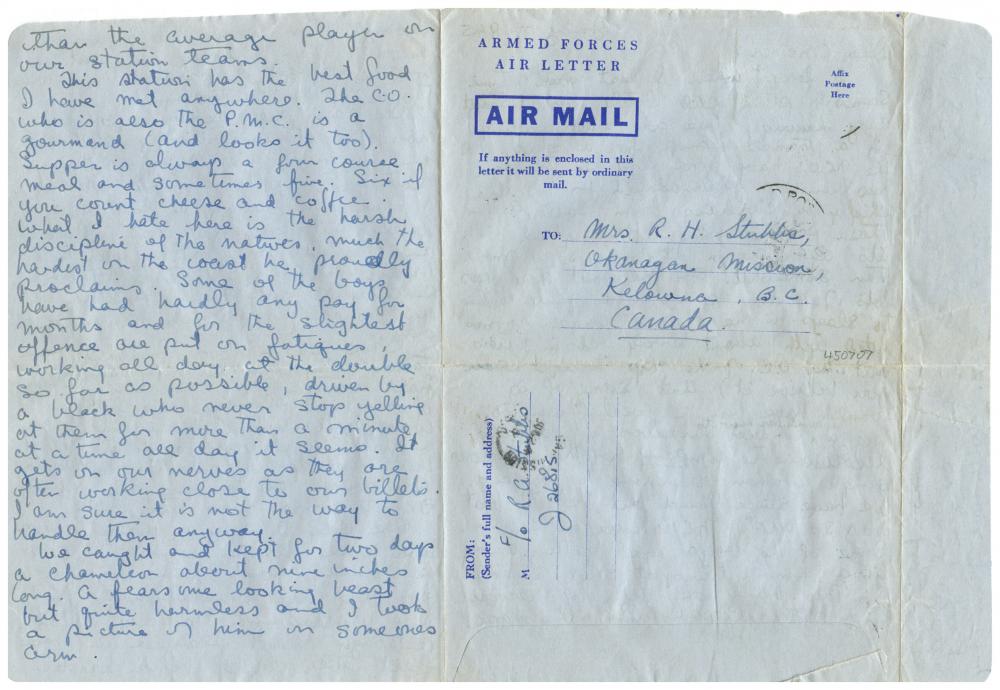 than the average player on
our station teams.
This station has the best food
I have met anywhere. The C.O.
who is also the P.M.C. is a
gourmand (and looks it too).
Supper is always a four course
meal and sometimes five. Six if
you count cheese and coffee.
What I hate here is the harsh
discipline of the natives, much the
hardest on the coast he proudly
proclaims. Some of the boys
have had hardly any pay for
months and for the slightest
offence are put on fatigues,
working all day at the double
so far as possible, driven by
a black who never stop yelling
at them for more than a minute
at a time all day it seems. It
gets on our nerves as they are
often working close to our billets.
I am sure it is not the way to
handle them anyway.
We caught and kept for two days
a chameleon about nine inches
long. A fearsome looking beast
but quite harmless and I took
a picture of him on someones
arm.
ARMED FORCES
AIR LETTER
Affix
Postage
Here
AIR MAIL
If anything is enclosed in this
letter it will be sent by ordinary
mail.
TO: Mrs. R. H. Stubbs,
Okanagan Mission,
Kelowna, B.C.
Canada.
450707
FROM:
(Sender's full name and address)
M F/O R.A. Stubbs
J26815